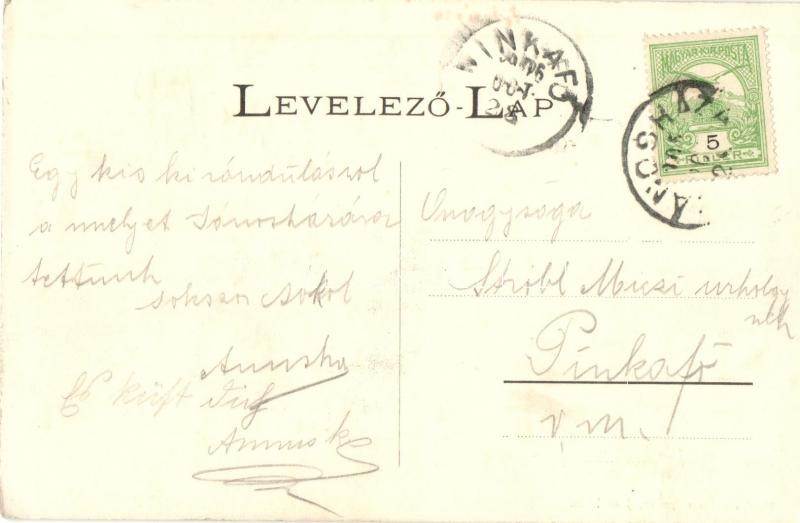 LEVELEZŐ-LAP
PINKAFŐ
OCT.
28
MAGYAR KIR. POSTA
5
JÁNOSHÁZA
Egy kis kirándulásról
a melyet Jánosházára
tettünk
sokszor csókol
Annuska
Annuska
Őnagysága
Ströbl Miczi urhölgy
nek
Pinkafő
v.m.